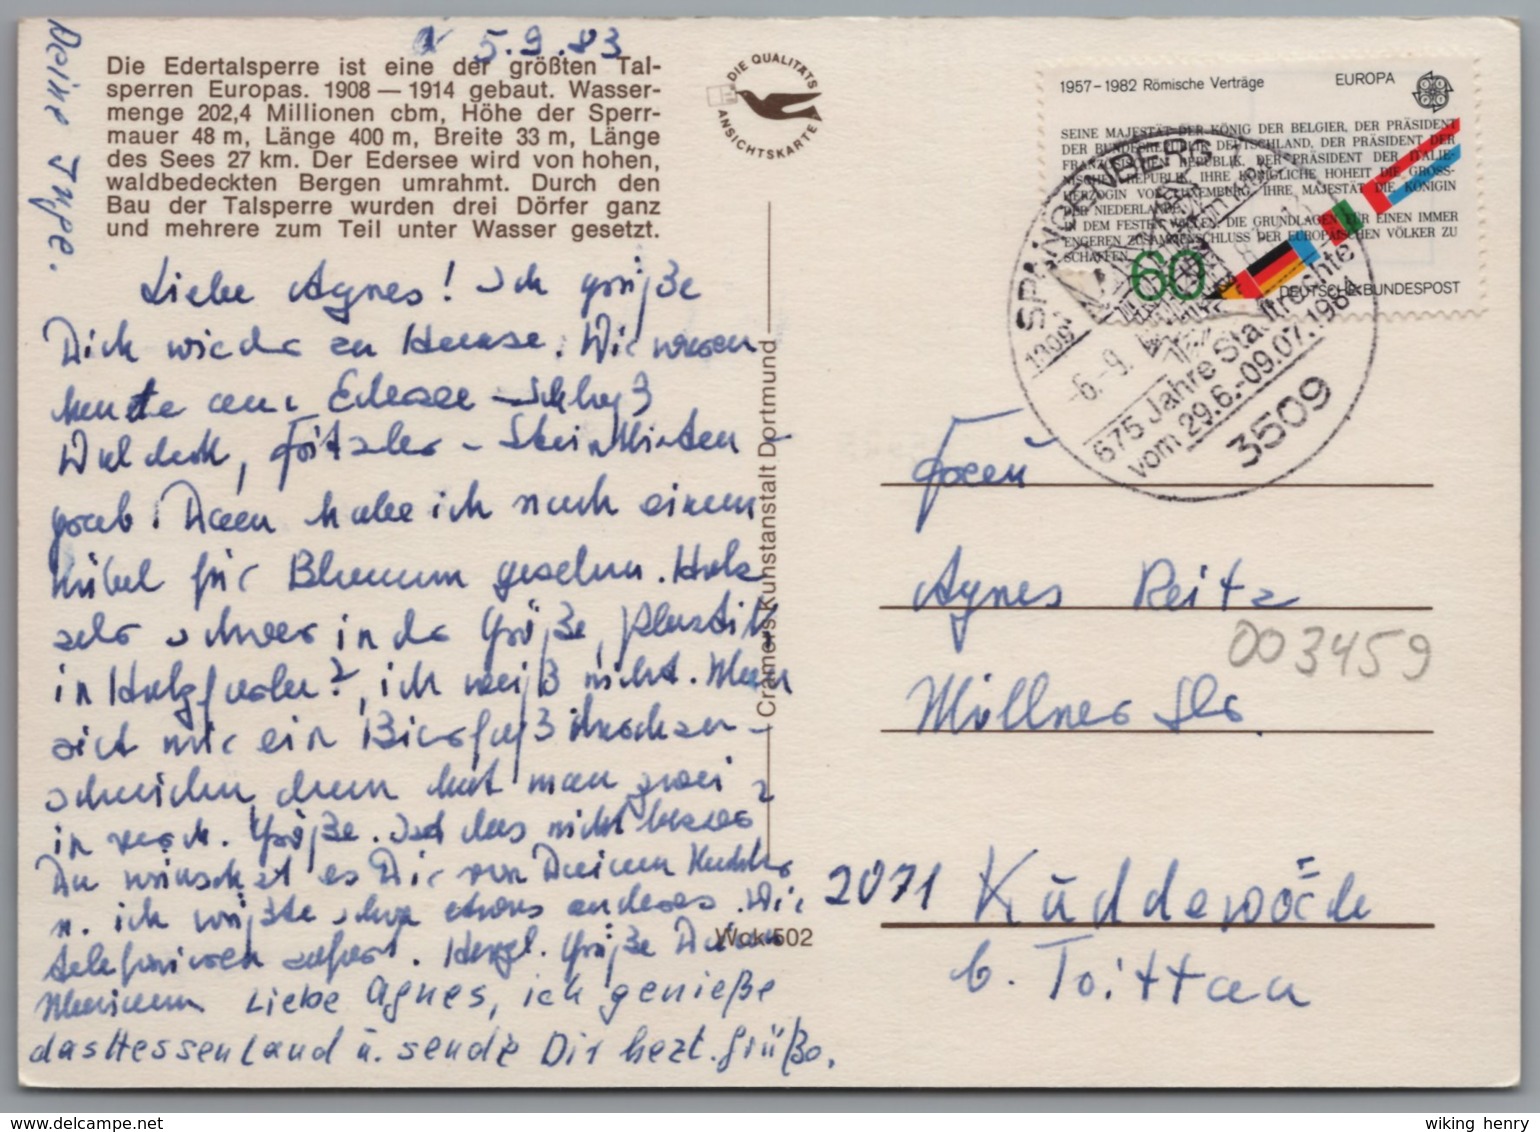 5.9.83
Die Edertalsperre ist eine der größten Tal-
sperren Europas. 1908 — 1914 gebaut. Wasser-
menge 202,4 Millionen cbm, Höhe der Sperr-
mauer 48 m, Länge 400 m, Breite 33 m, Länge
des Sees 27 km. Der Edersee wird von hohen,
waldbedeckten Bergen umrahmt. Durch den
Bau der Talsperre wurden drei Dörfer ganz
und mehrere zum Teil unter Wasser gesetzt.
Liebe Agnes! Ich grüße
Dich wieder zu Hause. Wir waren
heute am Edersee - Schloß
Waldeck, Fritzlar -
grab. Dann habe ich nach einem
Kübel für Blumen gesehen. Holz
sehr schwer in der Größe, Plastik
in Holzfarbe?, ich weiß nicht. Man
ein Bierfaß
dann hat man zwei
in versch. Größe. Ist das nicht besser
Du wünschst es Dir von Deinen
u. ich wüßte etwas anderes. Wir
telefonieren sofort. Herzl. Grüße Deine
Liebe Agnes, ich genieße
das Hessenland u. sende Dir herzl. Grüße.
Deine
DIE QUALITÄTS
ANSICHTSKARTE
Cramers Kunstanstalt Dortmund
Wck 502
1957–1982 Römische Verträge EUROPA
SEINE MAJESTÄT DER KÖNIG DER BELGIER, DER PRÄSIDENT
DER BUNDESREPUBLIK DEUTSCHLAND, DER PRÄSIDENT DER
FRANZÖSISCHEN REPUBLIK, DER PRÄSIDENT DER ITALIE-
NISCHEN REPUBLIK, IHRE KÖNIGLICHE HOHEIT DIE GROSS-
HERZOGIN VON LUXEMBURG, IHRE MAJESTÄT DIE KÖNIGIN
DER NIEDERLANDE,
IN DEM FESTEN WILLEN, DIE GRUNDLAGEN FÜR EINEN IMMER
ENGEREN ZUSAMMENSCHLUSS DER EUROPÄISCHEN VÖLKER ZU
SCHAFFEN
60
DEUTSCHE BUNDESPOST
SPANGENBERG
1309
-6.-9.
675 Jahre Stadtrechte
vom 29.6.-09.07.1984
3509
Frau
Agnes Reitz
003459
Möllner Str.
2071 Kuddewörde
b. Trittau
wiking henry